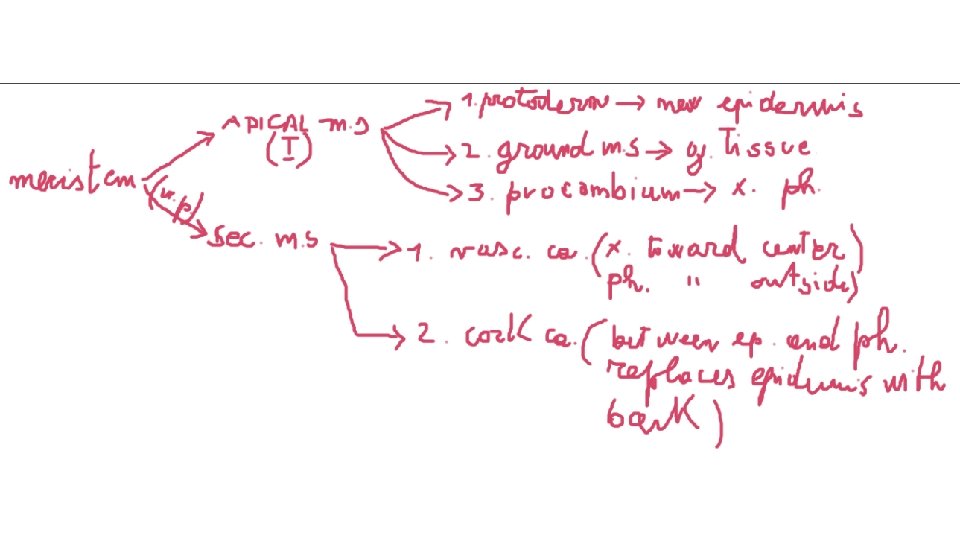 meristem
(w.p)
APICAL m.s
(I)
1. protoderm → new epidermis
2. ground m.s → g. Tissue
3. procambium → x. ph.
Sec. m.s
1. vasc. ca. (x. toward center)
ph. " outside)
2. cork ca. (between ep. and ph.
replaces epidermis with
bark)